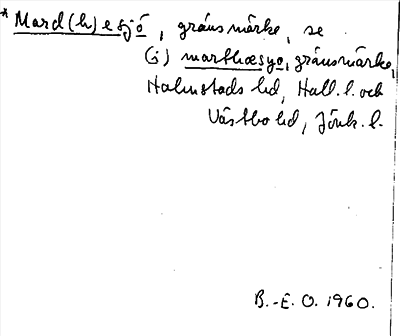 * Mard(h)esjö, gränsmärke, se
(i) marthæsyo, gränsmärke,
Halmstads hd, Hall. l. och
Västbo hd, Jönk. l.
B.-E. O. 1960.